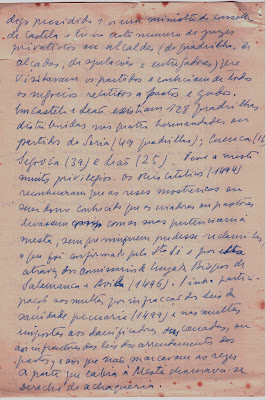 depo presidido por um ministro do conselho
de Castela e havia outro numero de juizes
privativos ou alcaldes (de quadrilha, de
alçadas, de apelações e entregadores) que
visitavam os partidos e conheciam de todos
os negocios relativos a pastos e gados.
Em Castela e Leão existiam 128 quadrilhas
distribuidas nas quatro hermandades ou
partidos de Soria (49 quadrilhas); Cuenca (15
Segovia (39) e Leão (25). Teve a mesta
muitos privilegios. Os reis catolicos (1494)
reconheceram que as reses mostrencas ou
sem dono conhecido que os viadores ou pastores
levassem com as suas pertenciam á
mesta, sem que ninguem pudesse reclamá-las,
o que foi confirmado pela Sta Sé e por
através dos comissarios de cruzada Bispos de
Salamanca e Avila (1496). Tinha partici-
pação nas multas por infracção das leis de
sanidade pecuaria (1499) e nas multas
impostas aos danificadores das canadas, ou
aos infractores das leis do arrendamento dos
pastos, e aos que não marcavam as reses
A parte que cabia á Mesta chamava-se
derecho de achaqueria.